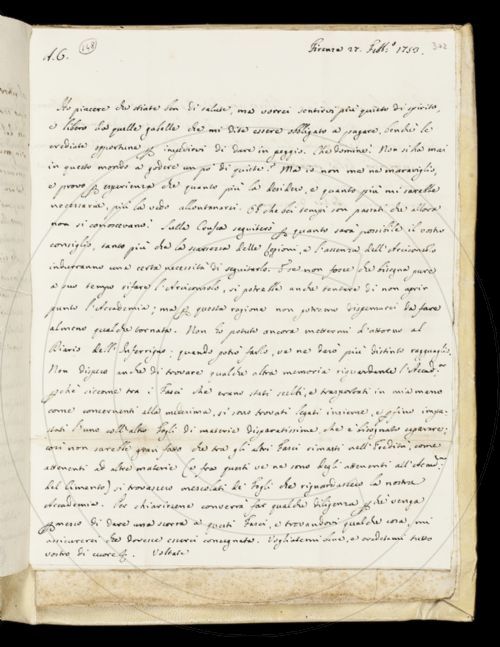 A. C. 148 Firenze 27. Febb.º 1753. 322
Ho piacere che stiate ben di salute, ma vorrei sentirvi più quieto di spirito,
e libero da quelle gabelle che mi dite essere obbligato a pagare, benchè le
crediate opportune p impedirvi di dare in peggio. Non si ha mai
in questo mondo a godere un po' di quiete? Ma io non me ne maraviglio,
e provo p esperienza che quanto più la desidero, e quanto più mi sarebbe
necessaria, più la vedo allontanarsi. Oh che bei tempi son passati che allora
non si conoscevano! Sulla Crusca seguiterò p quanto sarà possibile il vostro
consiglio, tanto più che la scarsezza delle Lezioni, e l'assenza dell'Arciconsolo
indurranno una certa necessità di seguitarlo. Se non fosse che bisogna pure
a suo tempo rifare l'Arciconsolo, si potrebbe anche tentare di non aprir
punto l'Accademia; ma p questa ragione non potremo dispensarci da fare
almeno qualche tornata. Non ho potuto ancora mettermi d'attorno al
Diario dell'Inferrigno; quando potrò farlo, ve ne darò più distinto ragguaglio.
Non dispero anche di trovare qualche altra memoria riguardante l'Accad.ª
pchè siccome tra i Fasci che erano stati scelti, e trasportati in mia mano
come concernenti alla medesima, si sono trovati legati insieme, e p fino impa-
stati l'uno coll'altro Fogli di materie disparatissime, che è bisognato separare;
così non sarebbe gran fatto che tra gli altri Fasci rimasti nell'Eredità, come
attenenti ad altre materie (e tra questi ve ne sono degli attenenti all'Accad.ª
del Cimento) si trovassero mescolati de' Fogli che riguardassero la nostra
Accademia. Per chiarirsene converrà far qualche diligenza pchè venga
pmesso di dare una scorsa a questi Fasci, e trovandovi qualche cosa, mi
assicurerei che dovesse esserci consegnata. Vogliatemi bene, e credetemi tutto
vostro di cuore. Voltate